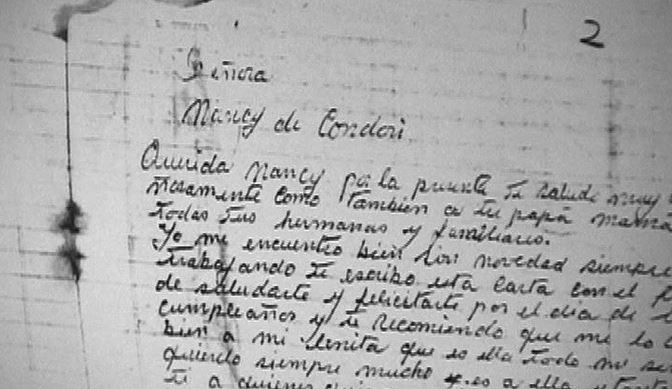 2
Señora
Nancy de Condori
Querida Nancy por la presente te salude muy
mosamente como también a tu papa mama
todas tus hermanas y familiares.
Yo me encuentro bien sin novedad siempre
trabajando te escribo esta carta con el
de saludarte y felicitarte por el dia de
cumpleaños y te recomiendo que me lo
bien a mi lenita que es ella todo mi
quierelo siempre mucho es a ella
ti a